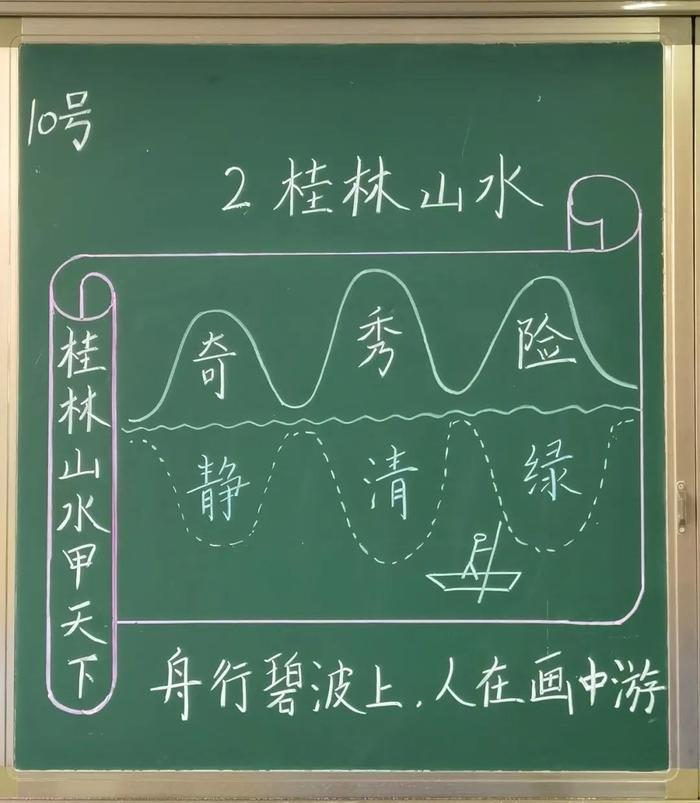 10号
2 桂林山水
桂林山水甲天下
奇 秀 险
静 清 绿
舟行碧波上.人在画中游